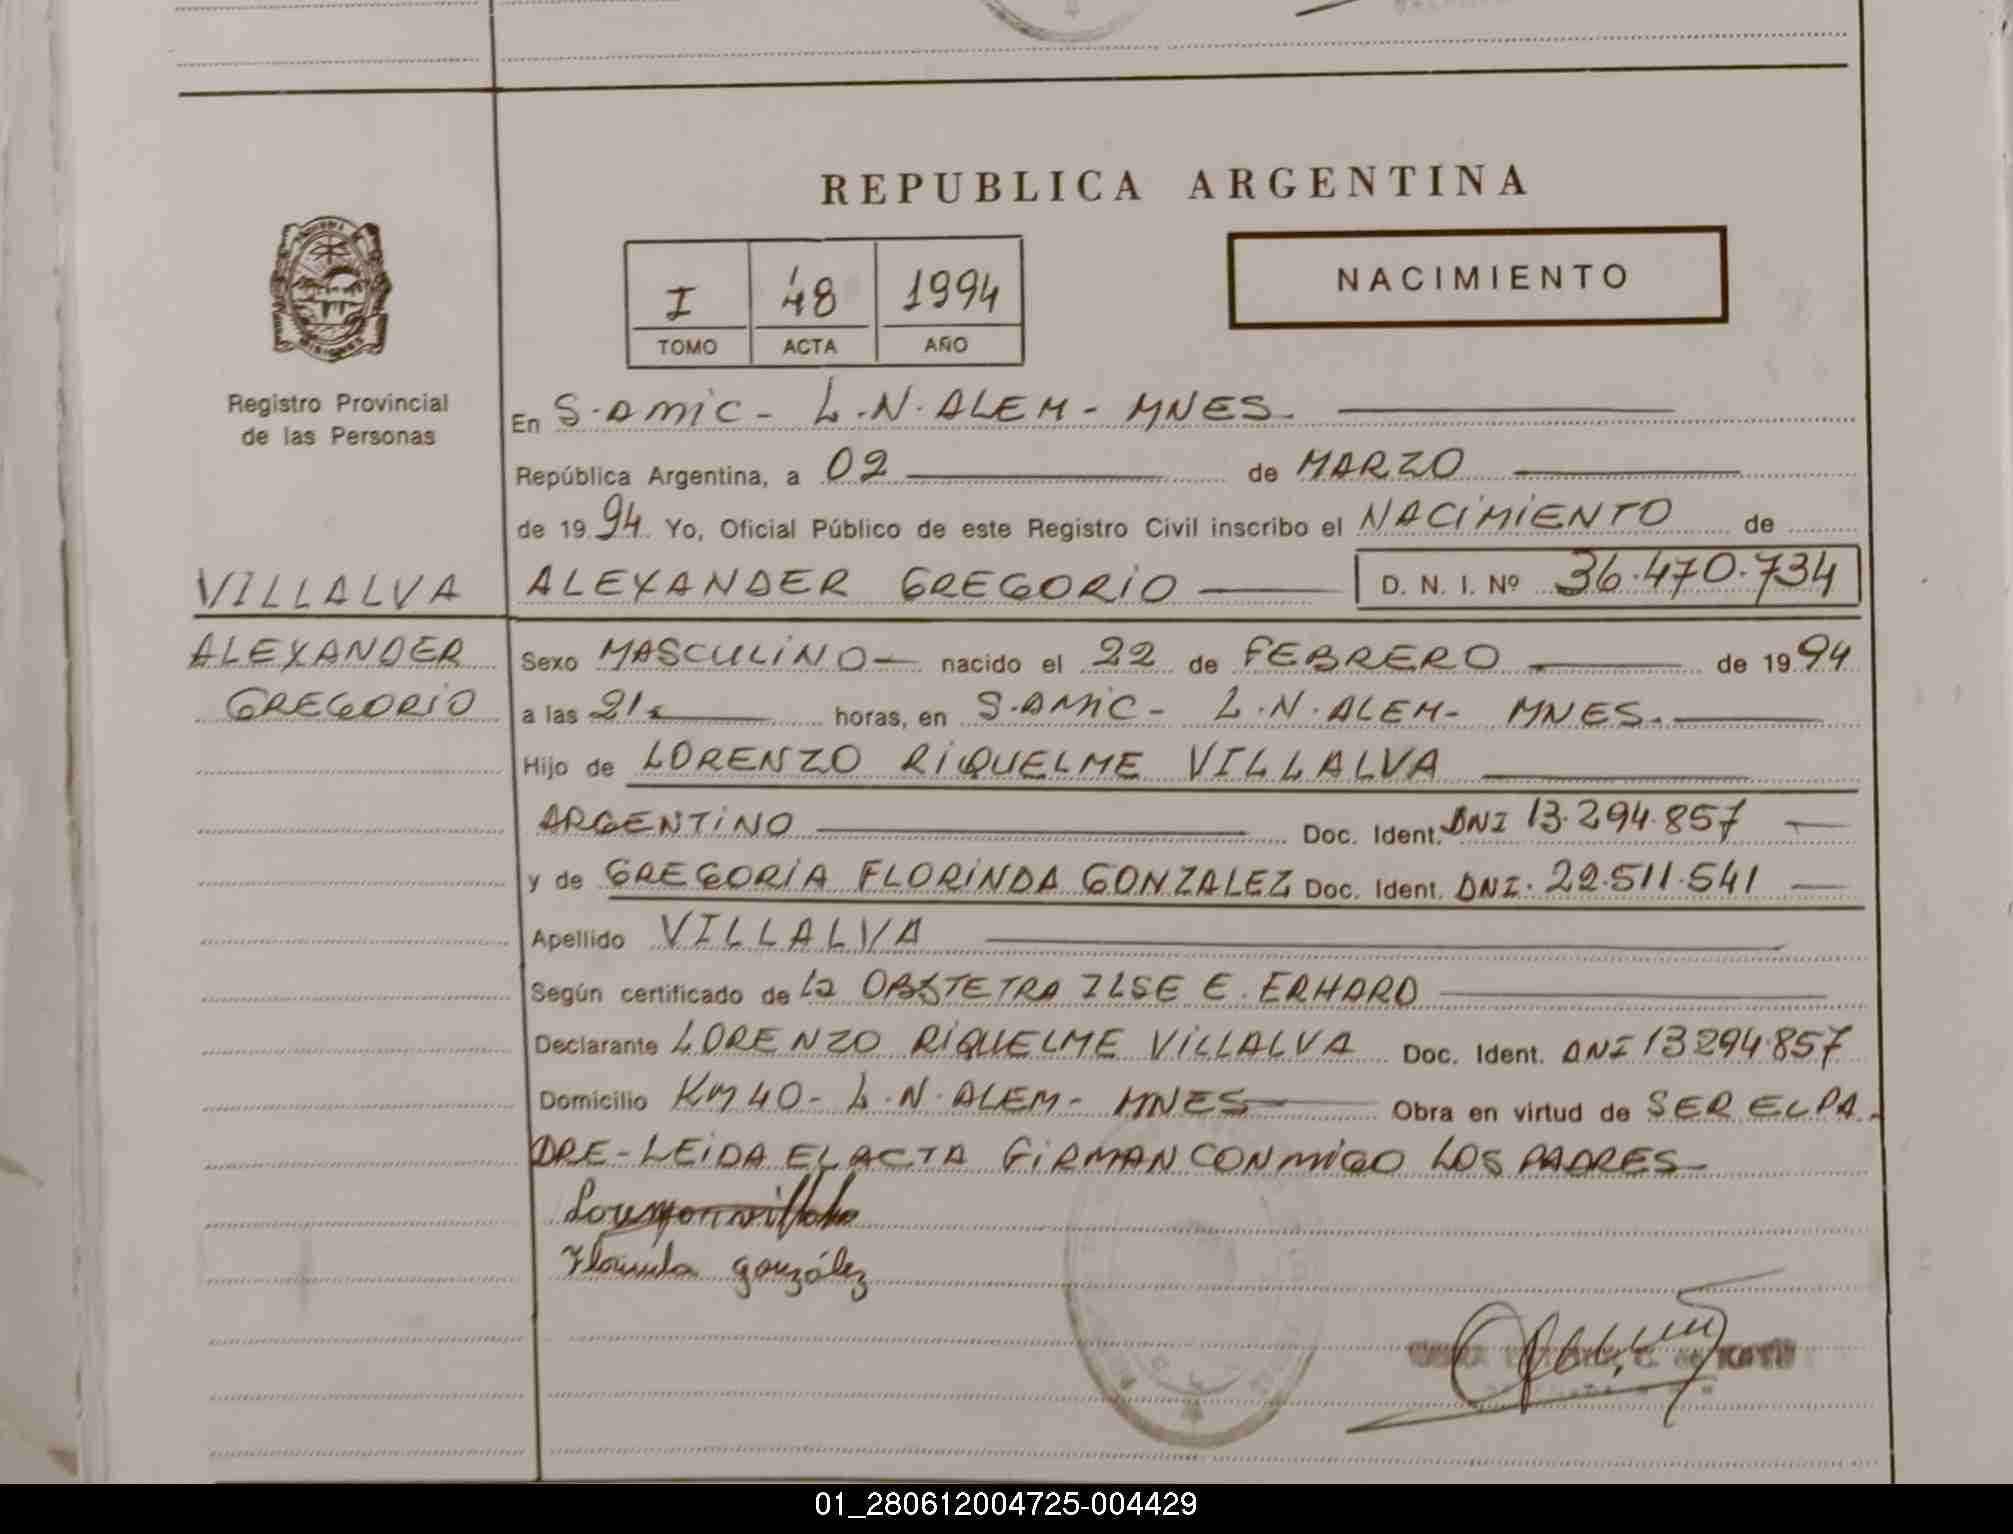 REPUBLICA ARGENTINA
I 48 1994
TOMO ACTA AÑO
NACIMIENTO
Registro Provincial
de las Personas
En S.AMIC - L.N.ALEM - MNES.
República Argentina, a 02 de MARZO
de 19 94 Yo, Oficial Público de este Registro Civil inscribo el NACIMIENTO de
VILLALVA ALEXANDER GREGORIO D. N. I. Nº 36.470.734
ALEXANDER
GREGORIO
Sexo MASCULINO - nacido el 22 de FEBRERO de 19 94
a las 21 horas, en S.AMIC - L.N.ALEM - MNES.
Hijo de LORENZO RIQUELME VILLALVA
ARGENTINO Doc. Ident. DNI 13.294.857
y de GREGORIA FLORINDA GONZALEZ Doc. Ident. DNI. 22.511.541
Apellido VILLALVA
Según certificado de la OBSTETRA ILSE E. ERHARD
Declarante LORENZO RIQUELME VILLALVA Doc. Ident. DNI 13294.857
Domicilio KM 40 - L.N.ALEM - MNES Obra en virtud de SER EL PA-
DRE - LEIDA EL ACTA FIRMAN CONMIGO LOS PADRES
Florinda gonzález
01_280612004725-004429